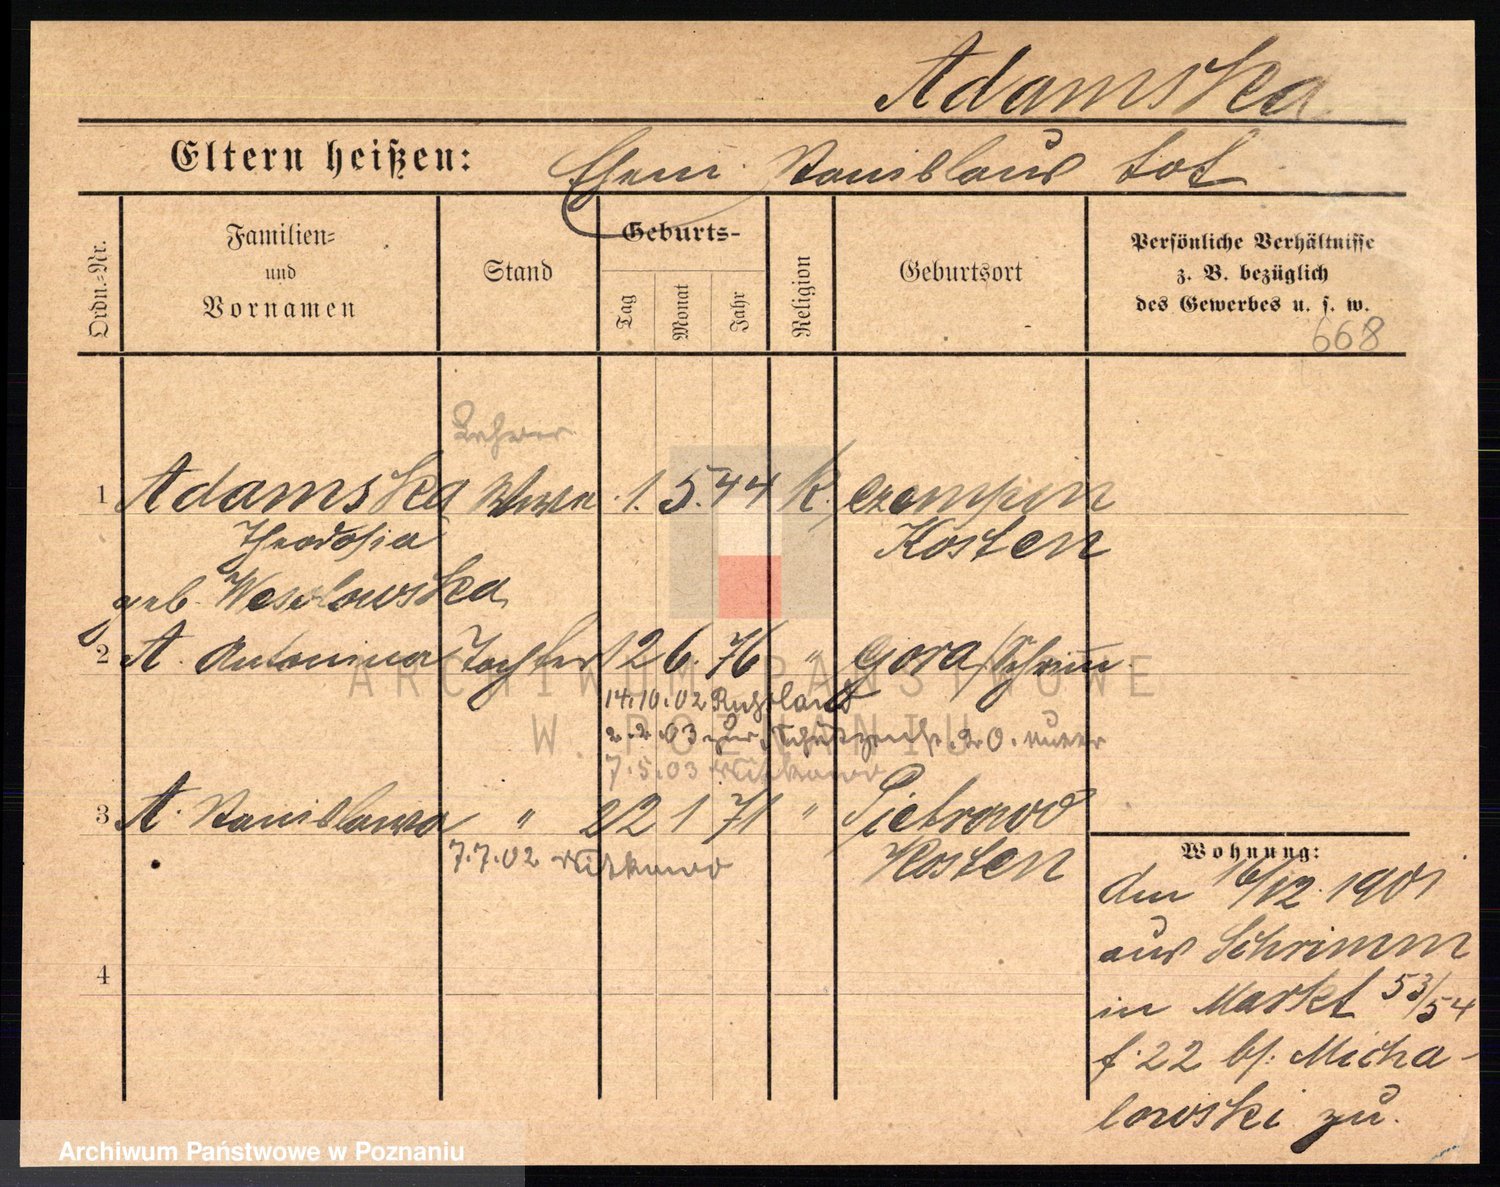 Adamska
Eltern heißen: Ehem. Stanislaus tot
Ordn.-Nr.
Familien-
und
Vornamen
Stand
Geburts-
Tag
Monat
Jahr
Religion
Geburtsort
Persönliche Verhältnisse
z. B. bezüglich
des Gewerbes u. s. w.
668
Lehrer
1 Adamska Wwe 1. 5. 44 K. Czempin
Theodosia " Kosten
geb. Wesolowska
2 A. Antonina Tochter 12 6 76 " Gora/Schrim
14.10.02 Rußland
2.2.03 zur 20.
7.5.03 Witkowo
3 A. Stanislawa " 22 1 71 " Pietrowo
7.7.02 Witkowo Kosten
4
Wohnung:
den 16/12. 1901
aus Schrimm
in Markt 53/54
f. 22 bs. Micha-
lowski zu.
ARCHIWUM PAŃSTWOWE
W POZNANIU
Archiwum Państwowe w Poznaniu